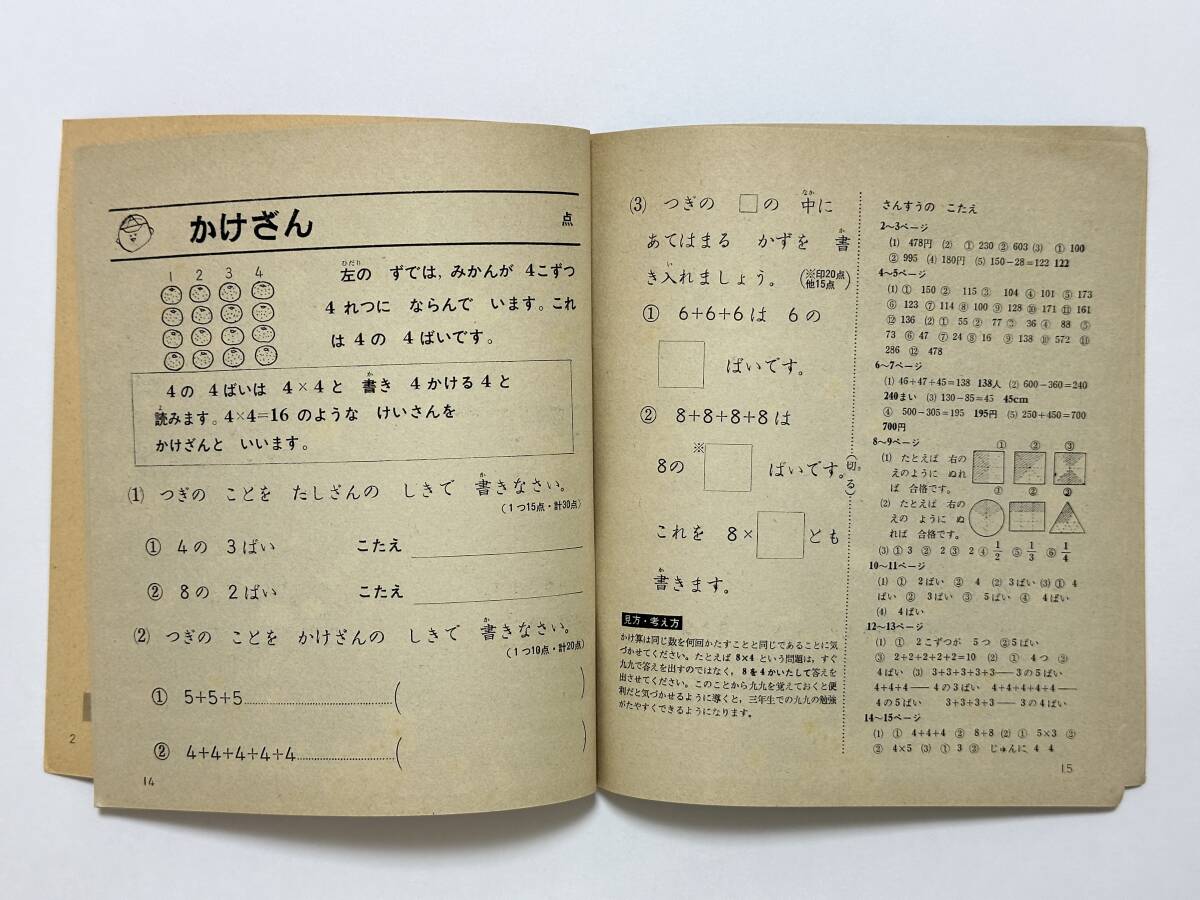 かけざん
点
1 2 3 4
左の ずでは,みかんが 4こずつ
4れつに ならんで います。これ
は4の 4ばいです。
4の 4ばいは 4×4と 書き 4かける4と
読みます。4×4=16 のような けいさんを
かけざんと いいます。
(1) つぎの ことを たしざんの しきで 書きなさい。
(1つ15点・計30点)
① 4の 3ばい こたえ
② 8の 2ばい こたえ
(2) つぎの ことを かけざんの しきで 書きなさい。
(1つ10点・計20点)
① 5+5+5 ( )
② 4+4+4+4+4 ( )
14
2
(3) つぎの □の 中に
あてはまる かずを 書
き入れましょう。(※印20点 他15点)
① 6+6+6は 6の
□ ばいです。
② 8+8+8+8は
8の ※□ ばいです。
これを 8×□とも
書きます。
見方・考え方
かけ算は同じ数を何回かたすことと同じであることに気
づかせてください。たとえば 8×4 という問題は,すぐ
九九で答えを出すのではなく,8を4かいたして答えを
出させてください。このことから九九を覚えておくと便
利だと気づかせるように導くと,三年生での九九の勉強
がたやすくできるようになります。
(切る)
さんすうの こたえ
2〜3ページ
(1) 478円 (2) ① 230 ② 603 (3) ① 100
② 995 (4) 180円 (5) 150-28=122 122
4〜5ページ
(1) ① 150 ② 115 ③ 104 ④ 101 ⑤ 173
⑥ 123 ⑦ 114 ⑧ 100 ⑨ 128 ⑩ 171 ⑪ 161
⑫ 136 (2) ① 55 ② 77 ③ 36 ④ 88 ⑤
73 ⑥ 47 ⑦ 24 ⑧ 16 ⑨ 138 ⑩ 572 ⑪
286 ⑫ 478
6〜7ページ
(1) 46+47+45=138 138人 (2) 600-360=240
240まい (3) 130-85=45 45cm
④ 500-305=195 195円 (5) 250+450=700
700円
8〜9ページ ① ② ③
(1) たとえば 右の
えのように ぬれ
ば 合格です。
① ② ③
(2) たとえば 右の
えの ように ぬ
れば 合格です。
(3) ① 3 ② 2 ③ 2 ④ 1/2 ⑤ 1/3 ⑥ 1/4
10〜11ページ
(1) ① 2ばい ② 4 (2) 3ばい (3) ① 4
ばい ② 3ばい ③ 5ばい ④ 4ばい
(4) 4ばい
12〜13ページ
(1) ① 2こずつが 5つ ②5ばい
③ 2+2+2+2+2=10 (2) ① 4つ ②
4ばい (3) 3+3+3+3+3── 3の5ばい
4+4+4── 4の3ばい 4+4+4+4+4──
4の5ばい 3+3+3+3── 3の4ばい
14〜15ページ
(1) ① 4+4+4 ② 8+8 (2) ① 5×3 ②
② 4×5 (3) ① 3 ② じゅんに 4 4
15